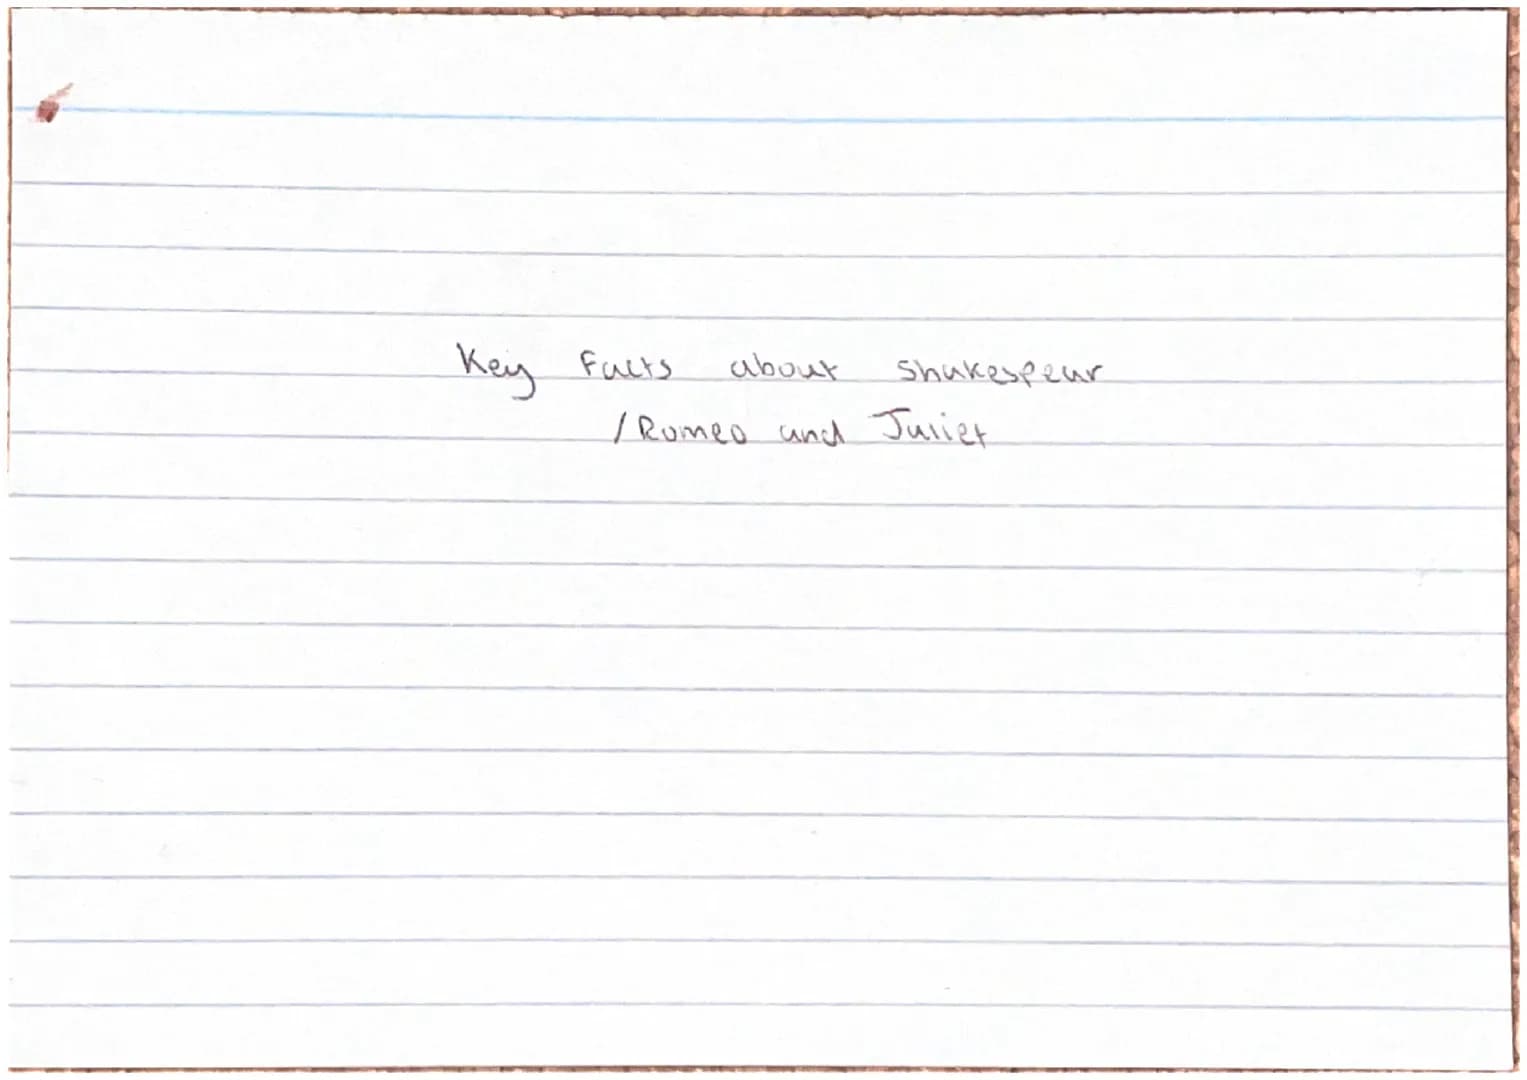 Key Facts about Shakespear
/Romeo and Juliet